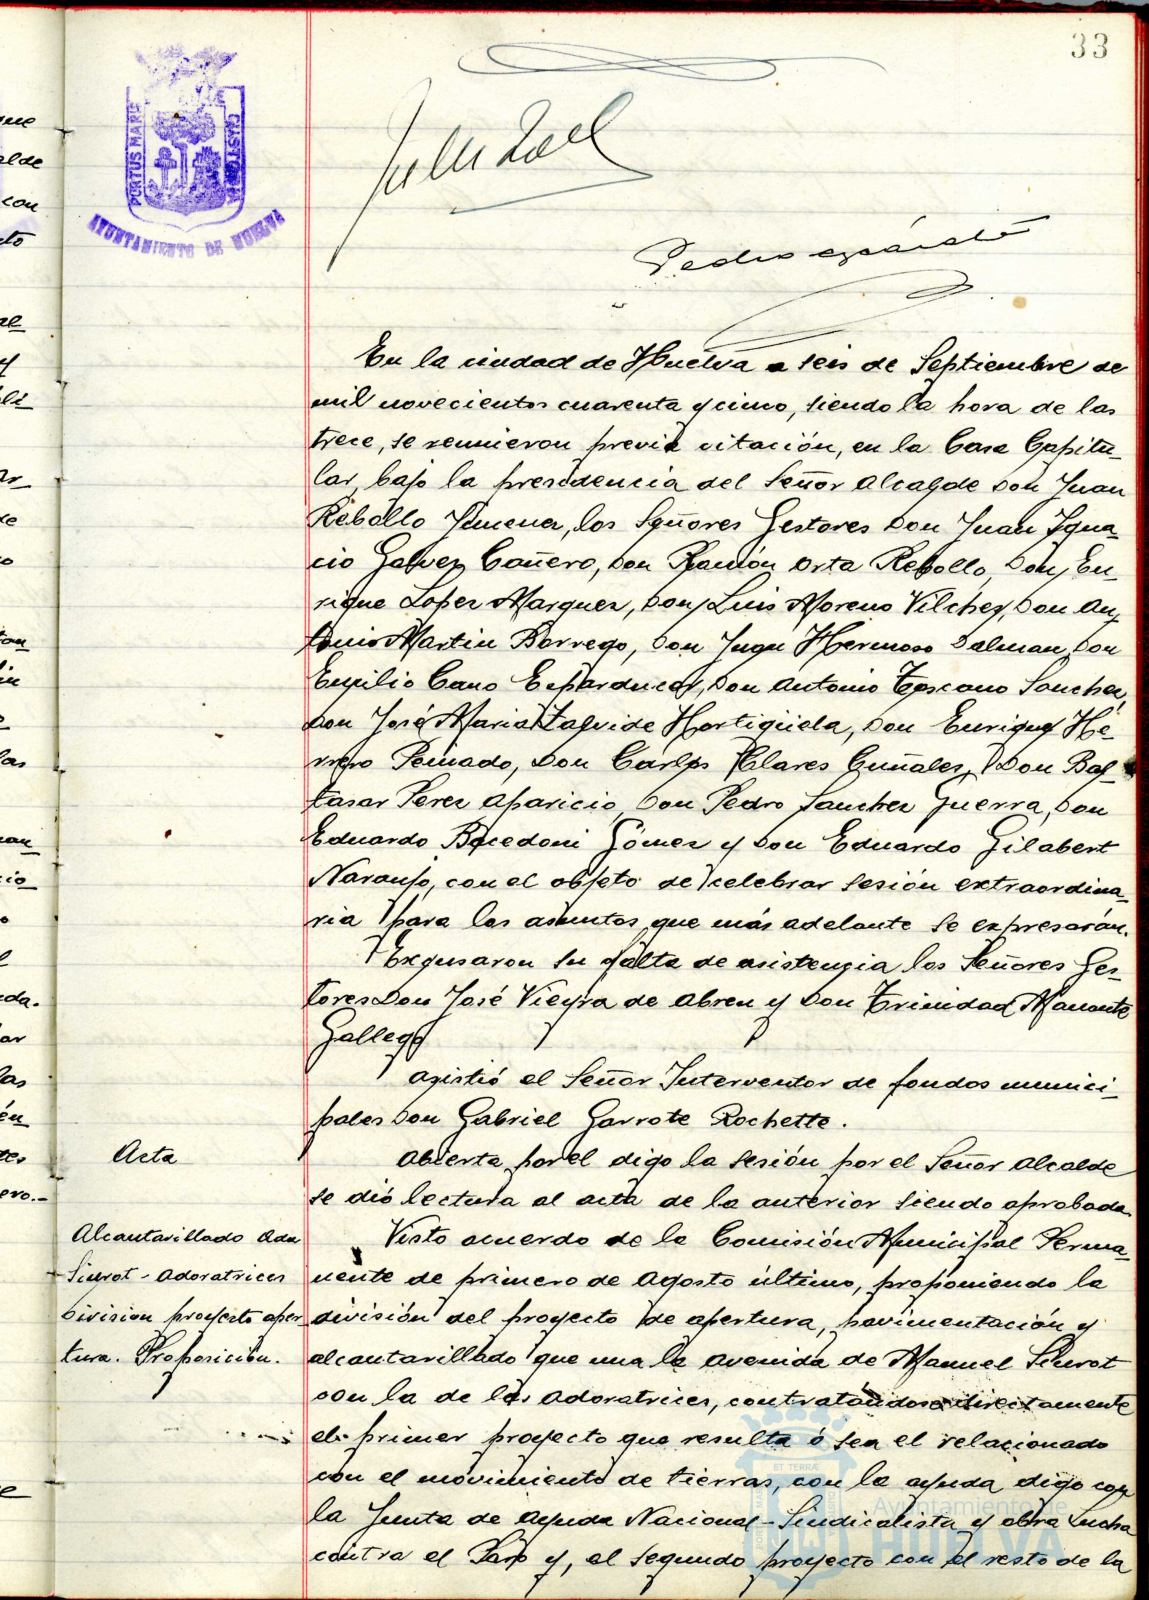 33
PORTUS MARIS
ET TERRÆ CUSTODIA
AYUNTAMIENTO DE HUELVA
En la ciudad de Huelva a seis de Septiembre de
mil novecientos cuarenta y cinco, siendo la hora de las
trece, se reunieron previa citación, en la Casa Capitu-
lar, bajo la presidencia del Señor Alcalde Don Juan
Rebollo Jimenez, los Señores Gestores Don Juan Igna-
cio Galvez Cañero, Don Ramón Orta Rebollo, Don En-
rique Lopez Marquez, Don Luis Moreno Vilchez, Don An-
tonio Martin Borrego, Don Hermoso Dalman, Don
Emilio Cano Don Antonio Toscano Sanchez,
Don José Maria Zalvide Hortigüela, Don Enrique He-
rrero Peinado, Don Carlos Clares Don Bal-
tasar Perez Aparicio, Don Pedro Sanchez Guerra, Don
Eduardo Bocedoni Gómez y Don Eduardo Gilabert
Naranjo, con el objeto de celebrar sesión extraordina-
ria para los asuntos, que más adelante se expresarán.
Excusaron su falta de asistencia los Señores Ges-
tores Don José Vieyra de Abreu y Don Trinidad Manante
Gallego
Asistió el Señor Interventor de fondos munici-
pales Don Gabriel Garrote Rochette.
Acta
Abierta por el digo la sesión por el Señor Alcalde
se dió lectura al acta de la anterior siendo aprobada.
Alcantarillado Avda
Siurot - Adoratrices
Division proyecto aper
tura. Proposición.
Visto acuerdo de la Comisión Municipal Perma-
nente de primero de Agosto último, proponiendo la
división del proyecto de apertura, pavimentación y
alcantarillado que una la avenida de Manuel Siurot
con la de las Adoratrices, contratándose directamente
el primer proyecto que resulta ó sea el relacionado
con el movimiento de tierras, con la ayuda digo con
la Junta de ayuda Nacional-Sindicalista y obra Lucha
contra el Paro y, el segundo proyecto con el resto de la
Ayuntamiento de
HUELVA